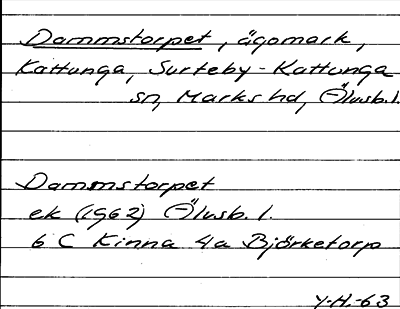 Dammstorpet, ägomark,
Kattunga, Surteby-Kattunga
sn, Marks hd, Älvsb. l.
Dammstorpet
ek (1962) Älvsb. l.
6 C Kinna 4a Björketorp
Y-H.-63